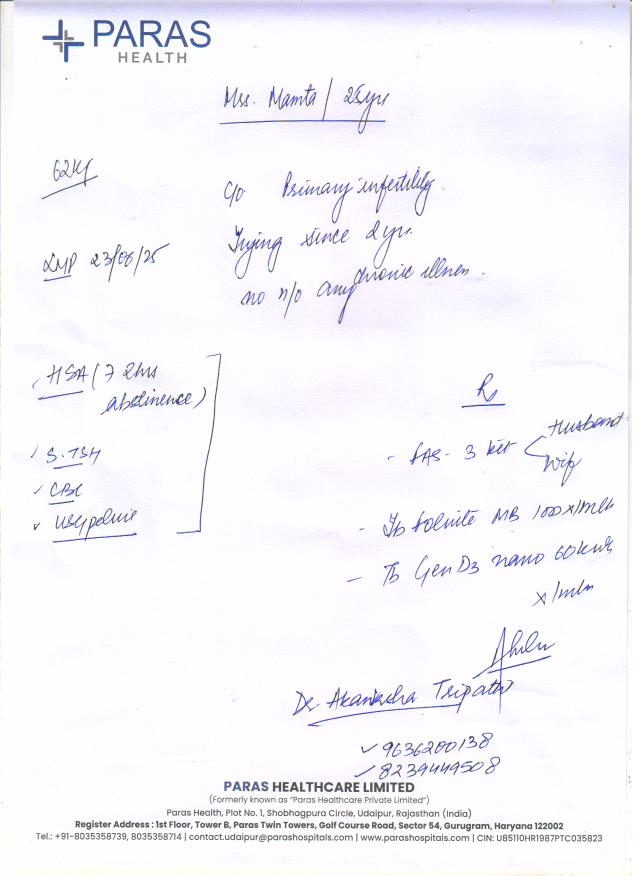 PARAS
HEALTH
Mrs. Mamta / 25yr
62kg
c/o Primary infertility
Trying since 2yr.
LMP 23/08/25
no h/o any chronic illness.
HSA (72hrs
abstinence)
S.TSH
CBC
USG pelvis
Rx
- FAS- 3 kit
Husband
Wife
- Tb MB 1 OD x 1 mth
- Tb Gen D3 nano 60k
x 1 mth
Dr. Akanksha Tripathi
9636200138
8239449508
PARAS HEALTHCARE LIMITED
(Formerly known as "Paras Healthcare Private Limited")
Paras Health, Plot No. 1, Shobhagpura Circle, Udaipur, Rajasthan (India)
Register Address : 1st Floor, Tower B, Paras Twin Towers, Golf Course Road, Sector 54, Gurugram, Haryana 122002
Tel.: +91-8035358739, 8035358714 | contact.udaipur@parashospitals.com | www.parashospitals.com | CIN: U85110HR1987PTC035823